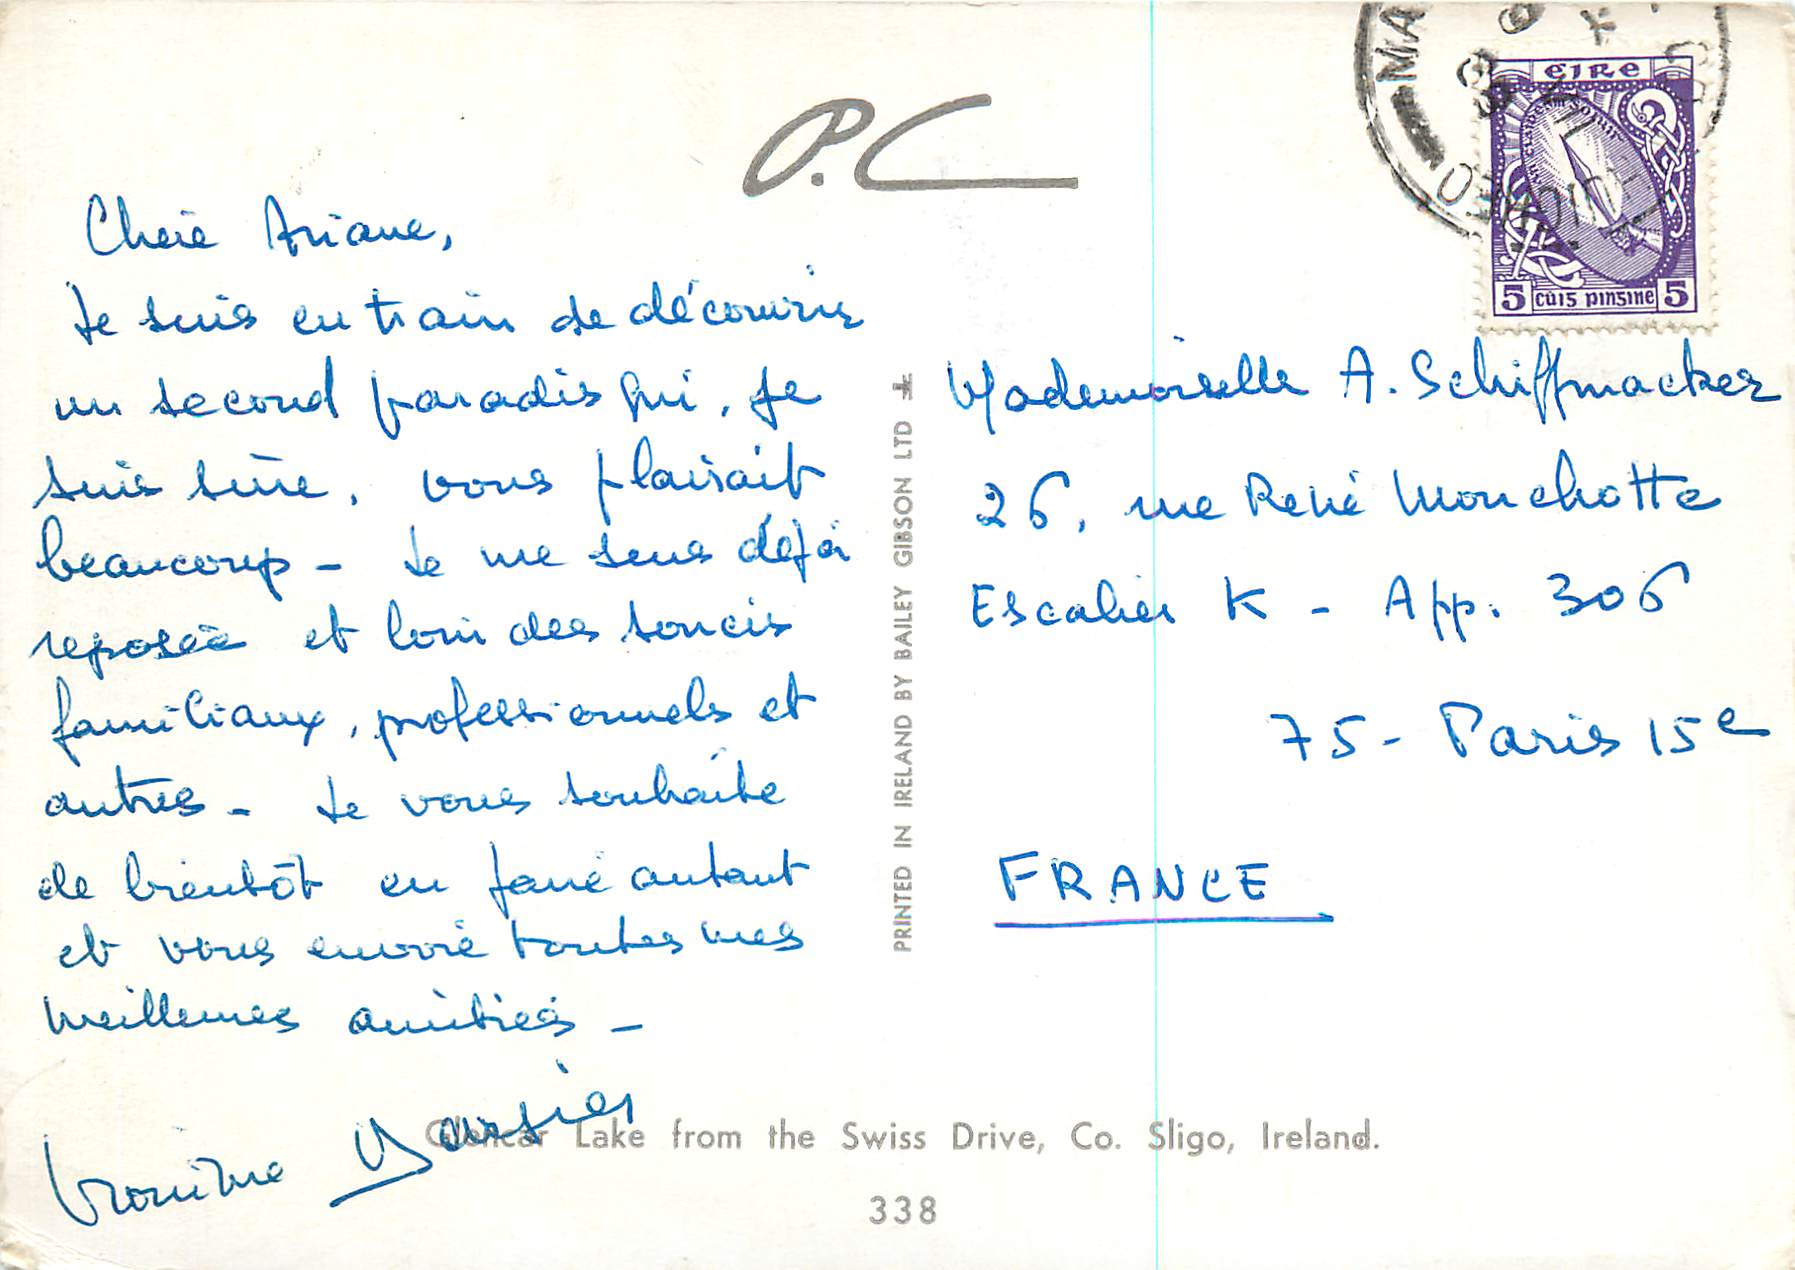 P.C
Chère Ariane,
Je suis en train de découvrir
un second paradis qui, je
suis sûre, vous plairait
beaucoup - Je me sens déjà
reposée et loin des soucis
familiaux, professionnels et
autres - Je vous souhaite
de bientôt en faire autant
et vous envoie toutes mes
meilleures amitiés -
EIRE
5 CÚIS PINSINE 5
Mademoiselle A. Schiffmacker
26, rue René Mouchotte
Escalier K - App. 306
75 - Paris 15e
FRANCE
PRINTED IN IRELAND BY BAILEY GIBSON LTD
Glencar Lake from the Swiss Drive, Co. Sligo, Ireland.
338